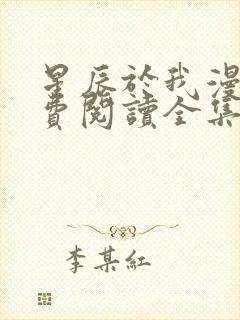 星辰於我漫
費閱讀全集
李某紅